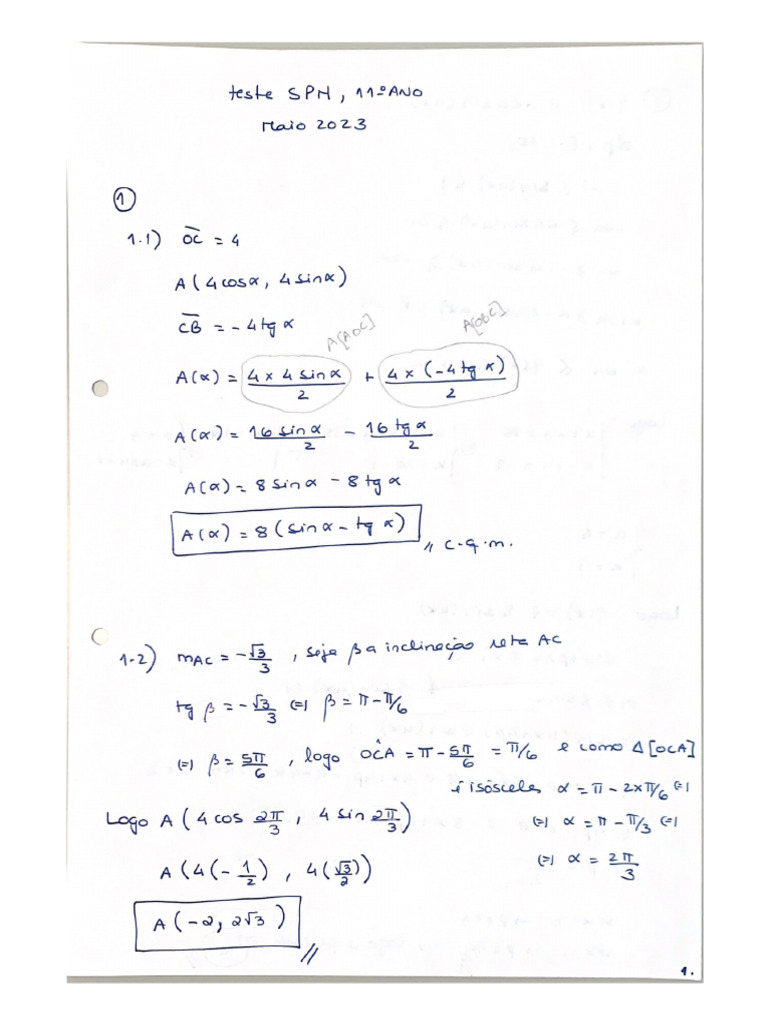 teste SPM, 11ºANO
Maio 2023
①
1.1) O̅C̅ = 4
A(4cosα, 4sinα)
C̅B̅ = -4tg α
A[AOC]
A[OBC]
A(α) = 4×4sinα/2 + 4×(-4tg α)/2
A(α) = 16sinα/2 - 16tgα/2
A(α) = 8sinα - 8tgα
A(α) = 8(sinα - tg α) // c.q.m.
1.2) mAC = -√3/3, seja β a inclinação reta AC
tg β = -√3/3 (=) β = π - π/6
(=) β = 5π/6, logo OĈA = π - 5π/6 = π/6 e como Δ[OCA]
é isósceles α = π - 2×π/6 (=)
Logo A(4cos 2π/3, 4sin 2π/3) (=) α = π - π/3 (=)
A(4(-1/2), 4(√3/2)) (=) α = 2π/3
A(-2, 2√3) //
1.